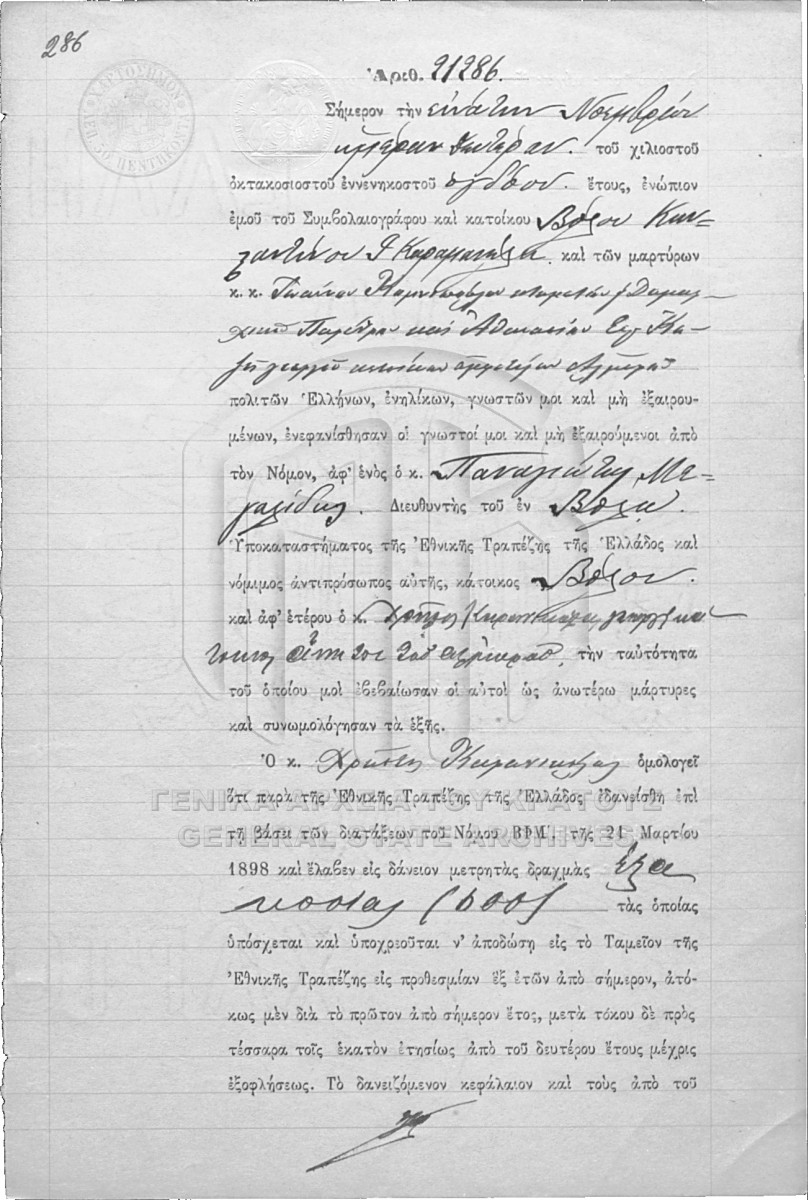 286
ΧΑΡΤΟΣΗΜΟΝ
Ἀριθ. 21286.
Σήμερον τὴν ἐνάτην Νοεμβρίου
ἡμέραν Δευτέραν. τοῦ χιλιοστοῦ
ὀκτακοσιοστοῦ ἐννενηκοστοῦ ὀγδόου. ἔτους, ἐνώπιον
ἐμοῦ τοῦ Συμβολαιογράφου καὶ κατοίκου Βόλου Κων-
σταντίνου καὶ τῶν μαρτύρων
κ. κ. Ἰωάννου
καὶ Ἀθανασίου
πολιτῶν Ἑλλήνων, ἐνηλίκων, γνωστῶν μοι καὶ μὴ ἐξαιρου-
μένων, ἐνεφανίσθησαν οἱ γνωστοί μοι καὶ μὴ ἐξαιρούμενοι ἀπὸ
τὸν Νόμον, ἀφ' ἑνὸς ὁ κ. Παναγιώτης
Διευθυντὴς τοῦ ἐν Βόλῳ.
Ὑποκαταστήματος τῆς Ἐθνικῆς Τραπέζης τῆς Ἑλλάδος καὶ
νόμιμος ἀντιπρόσωπος αὐτῆς, κάτοικος Βόλου.
καὶ ἀφ' ἑτέρου ὁ κ. Χρῆστος
τοῦ Ἁλμυροῦ, τὴν ταὐτότητα
τοῦ ὁποίου μοὶ ἐβεβαίωσαν οἱ αὐτοὶ ὡς ἀνωτέρω μάρτυρες
καὶ συνωμολόγησαν τὰ ἑξῆς.
Ὁ κ. Χρῆστος ὁμολογεῖ
ὅτι παρὰ τῆς Ἐθνικῆς Τραπέζης τῆς Ἑλλάδος ἐδανείσθη ἐπὶ
ΓΕΝΙΚΑ ΑΡΧΕΙΑ ΤΟΥ ΚΡΑΤΟΥΣ
τῇ βάσει τῶν διατάξεων τοῦ Νόμου ΒΦΜ'. τῆς 21 Μαρτίου
GENERAL STATE ARCHIVES
1898 καὶ ἔλαβεν εἰς δάνειον μετρητὰς δραχμὰς ἑξα
κοσίας (600) τὰς ὁποίας
ὑπόσχεται καὶ ὑποχρεοῦται ν' ἀποδώσῃ εἰς τὸ Ταμεῖον τῆς
Ἐθνικῆς Τραπέζης εἰς προθεσμίαν ἓξ ἐτῶν ἀπὸ σήμερον, ἀτό-
κως μὲν διὰ τὸ πρῶτον ἀπὸ σήμερον ἔτος, μετὰ τόκου δὲ πρὸς
τέσσαρα τοῖς ἑκατὸν ἐτησίως ἀπὸ τοῦ δευτέρου ἔτους μέχρις
ἐξοφλήσεως. Τὸ δανειζόμενον κεφάλαιον καὶ τοὺς ἀπὸ τοῦ